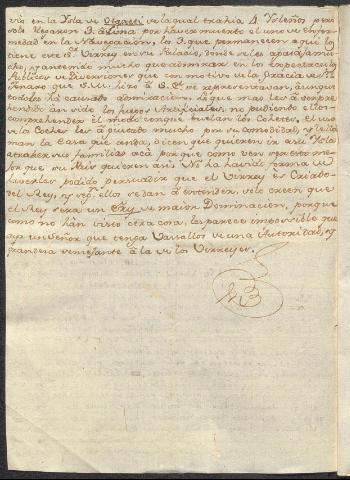 vis en la Ysla de Otageti de la qual trahia 4 Ysleños pero
solo llegaron 3 à Lima por haver muerto el uno de enfer
medad en la Navegacion, los 3 que permanecen aqui los
tiene este Sr. Virrey en su Palacio, donde se les agasaja mu
cho, y han tenido mucho que admirar en los expectaculos
publicos de Diversiones que con motivo de la gracia de
que S. M. hizo à S. E. se representavan, aunque
todo les hà causado admiracion. Lo que mas les à sorpre
hendido àn sido los fuegos Artificiales, no pudiendo ellos
comprehender el modo con que buelan los Cohetes. El uso
de los Coches les à gustado mucho por su comodidad, y le lla
man la Casa que anda, dicen que quieren ir à su Ysla
à traher sus familias acà porque como ven que esto es me
jor que su Pais quieren
haverles podido persuadir que el Virrey es Criado
del Rey, y segn. ellos se dàn à entender, solo creen que
el Rey serà un de maior Dominacion, porque
como no hàn visto otra cosa, les parece impossible que
aya un Señor que tenga Vasallos de una Autoridad, y
grandeza semejante à la de los Virreyes.